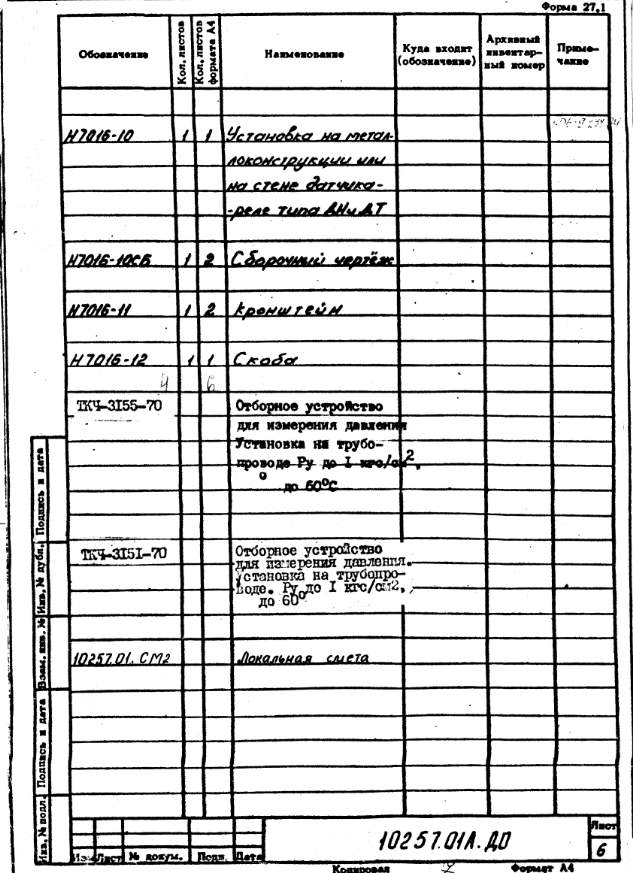 Форма 27,1
Обозначение
Кол. листов
Кол. листов формата А4
Наименование
Куда входит (обозначение)
Архивный инвентарный номер
Примечание
Н7016-10 1 1 Установка на метал-
локонструкции или
на стене датчика-
-реле типа ДН и ДТ
Н7016-10СБ 1 2 Сборочный чертёж
Н7016-11 1 2 Кронштейн
Н7016-12 1 1 Скоба
4 6
ТКЧ-3155-70 Отборное устройство
для измерения давления
Установка на трубо-
проводе Ру до I кгс/см²,
до 60°С
ТКЧ-3151-70 Отборное устройство
для измерения давления.
Установка на трубопро-
воде. Ру до I кгс/см2,
до 60°
10257.01.СМ2 Локальная смета
Инв. № подл.
Подпись и дата
Взам. инв. №
Инв. № дубл.
Подпись и дата
Изм Лист № докум. Подп. Дата
10257.01А.ДО
Лист
6
Копировал
Формат А4